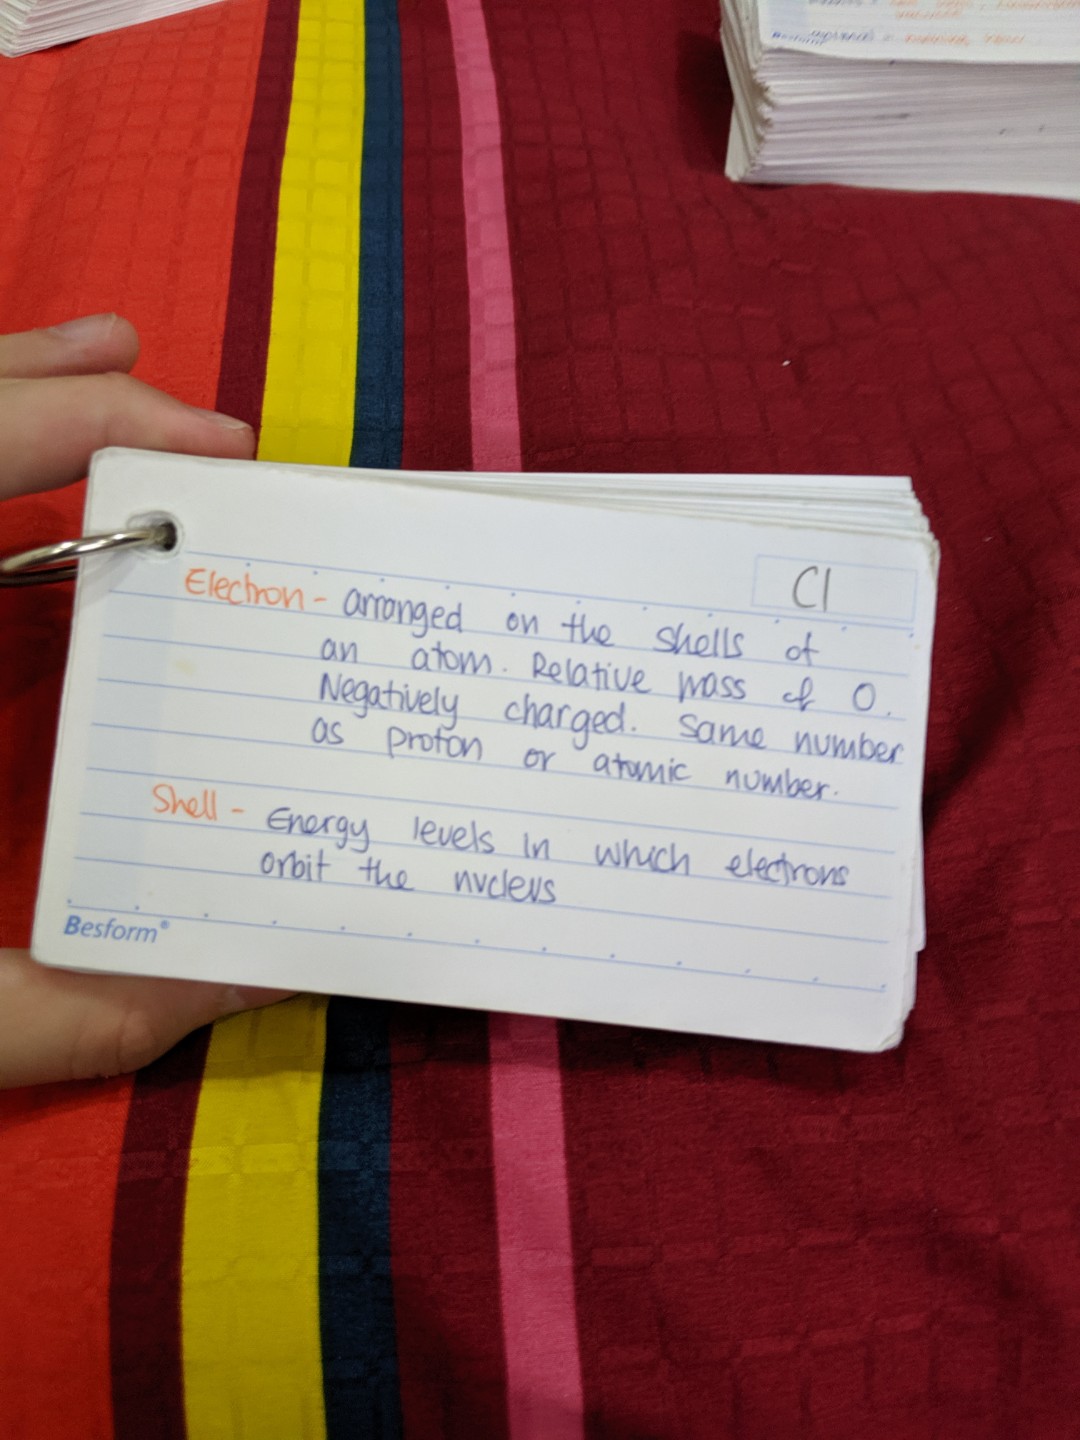 C1
Electron - arranged on the shells of
an atom. Relative mass of 0.
Negatively charged. Same number
as proton or atomic number.
Shell - Energy levels in which electrons
orbit the nucleus
Besform®